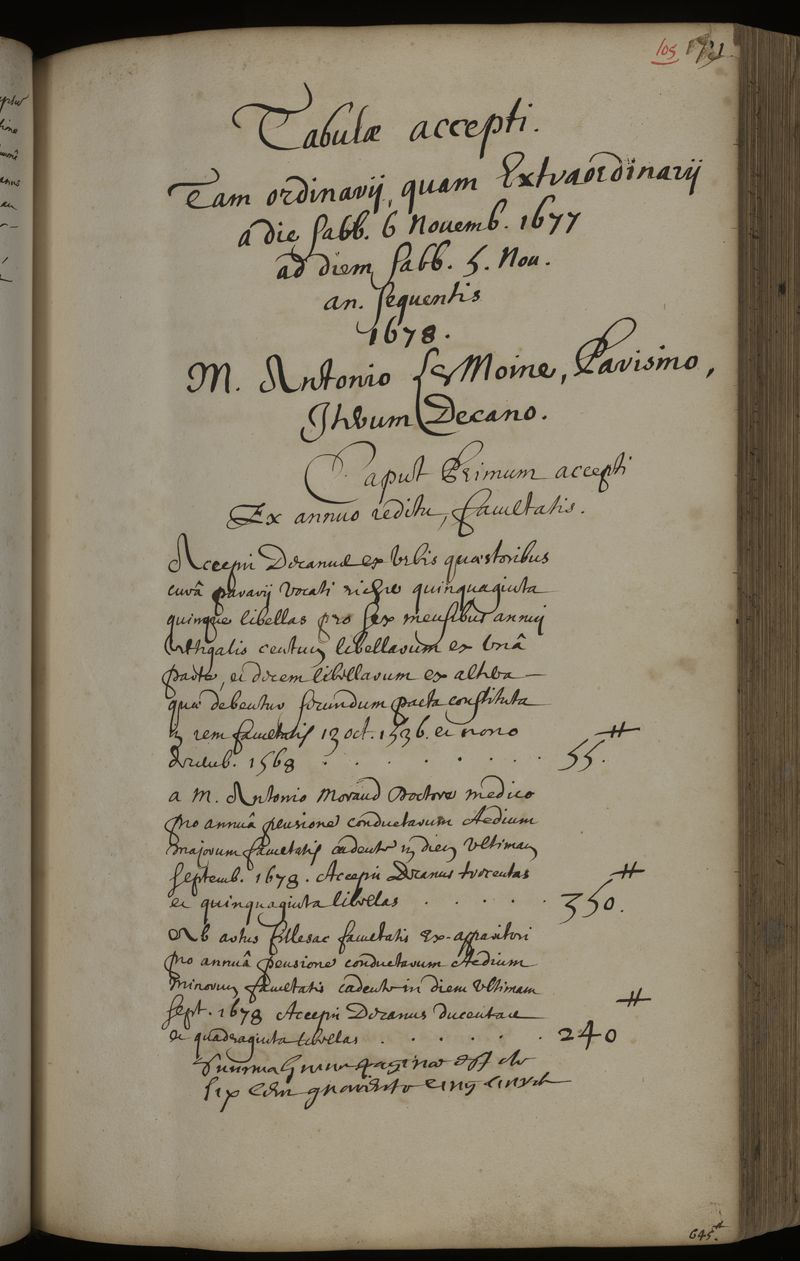 105
Tabulæ accepti.
Tam ordinarij, quam Extraordinarij
a die sabb. 6 Nouemb. 1677
ad diem sabb. 5. Nou.
an. sequentis
1678.
M. Antonio Le Moine, Parisino,
Iterum Decano.
Caput Primum accepti
Ex annuo reditu, facultatis.
Accepi Decanus ex Urbis quæstoribus
curâ vocati quinquaginta
quinque libellas pro sex mensibus annui
Vectigalis centum libellarum ex unâ
parte, et decem libellarum ex altera
quæ debentur secundum pacta constituta
in rem facultatis 13 oct. 1536. et nono
1568 . . . . . . . . 55. ⌗
a M. Antonio Morand Doctore medico
pro annuâ pensione conductarum Aedium
majorum facultatis cadente in diem Ultimam
septemb. 1678. Accepi Decanus trecentas
et quinquaginta libellas . . . . . 350. ⌗
Ab fillesac facultatis Ex-apparitori
pro annuâ pensione conductarum Aedium
minorum facultatis cadente in diem Ultimam
sept. 1678 Accepi Decanus ducentas
et quadraginta libellas . . . . . . 240 ⌗
Summa paginæ est de
six cent quarante cinq
645.⌗